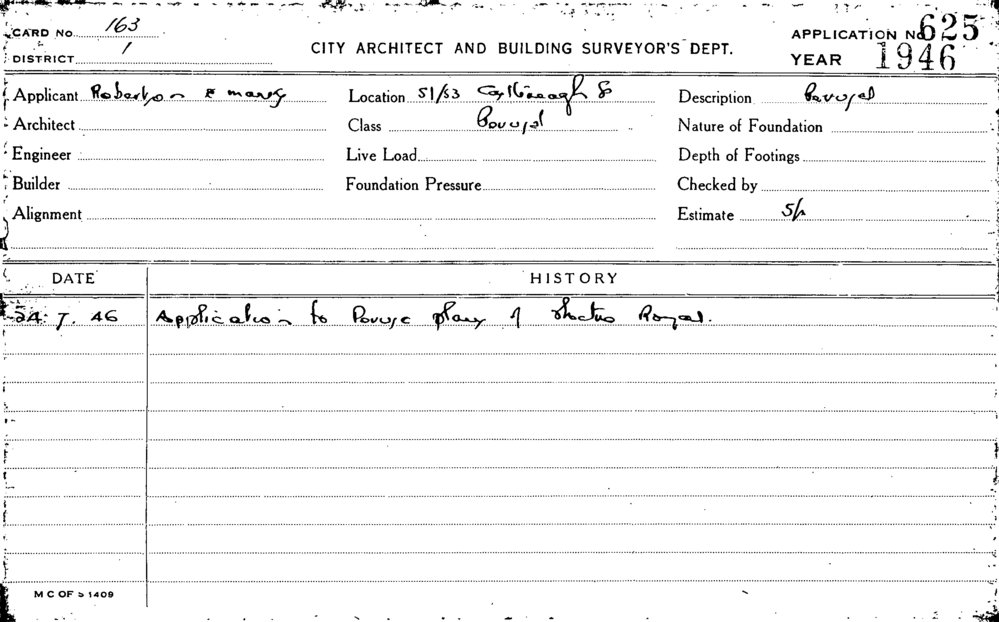 CARD No. 163
APPLICATION No 625
DISTRICT 1
CITY ARCHITECT AND BUILDING SURVEYOR'S DEPT.
YEAR 1946
Applicant Robertson & Marks Location 51/53 Castlereagh S Description Perusal
Architect Class Perusal Nature of Foundation
Engineer Live Load Depth of Footings
Builder Foundation Pressure Checked by
Alignment Estimate 5/-
DATE HISTORY
24. 7. 46 Application to Peruse plans of Theatre Royal.
M C OF S 1409